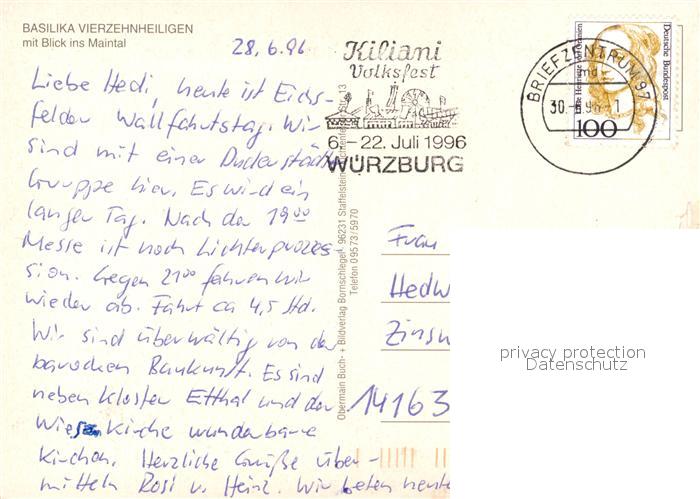 BASILIKA VIERZEHNHEILIGEN
mit Blick ins Maintal
28.6.96
Liebe Hedi, heute ist Eichs-
felder Wallfahrtstag. Wir
sind mit einer Duderstädter
Gruppe hier. Es wird ein
langer Tag. Nach der 19⁰⁰
Messe ist noch Lichterprozes-
sion. Gegen 21⁰⁰ fahren wir
wieder ab. Fahrt ca 4,5 Std.
Wir sind überwältig von der
barocken Baukunst. Es sind
neben Kloster Etthal und der
Wies Kirche wunderbare
Kirchen. Herzliche Grüße über-
mitteln Rosi u. Heinz. Wir beten heute
Kiliani
Volksfest
6.–22. Juli 1996
WÜRZBURG
BRIEFZENTRUM 97
md
30.-6.96-1
Deutsche Bundespost
100
Obermain Buch- + Bildverlag Bornschlegel, 96231 Staffelstein
Telefon 09573/5970
Frau
Hedw
Zinsn
14163
privacy protection
Datenschutz